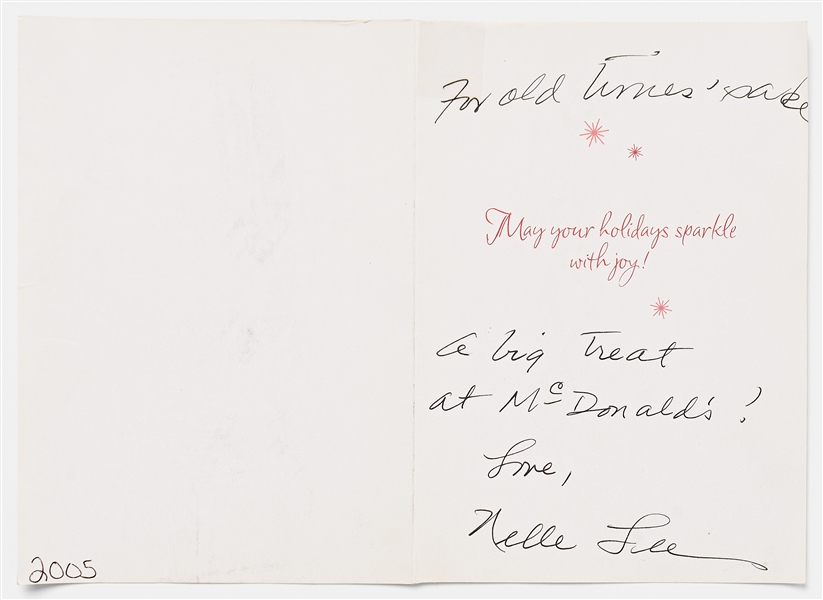 For old Times' sake
May your holidays sparkle
with joy!
a big Treat
at McDonald's!
Love,
Nelle Lee
2005